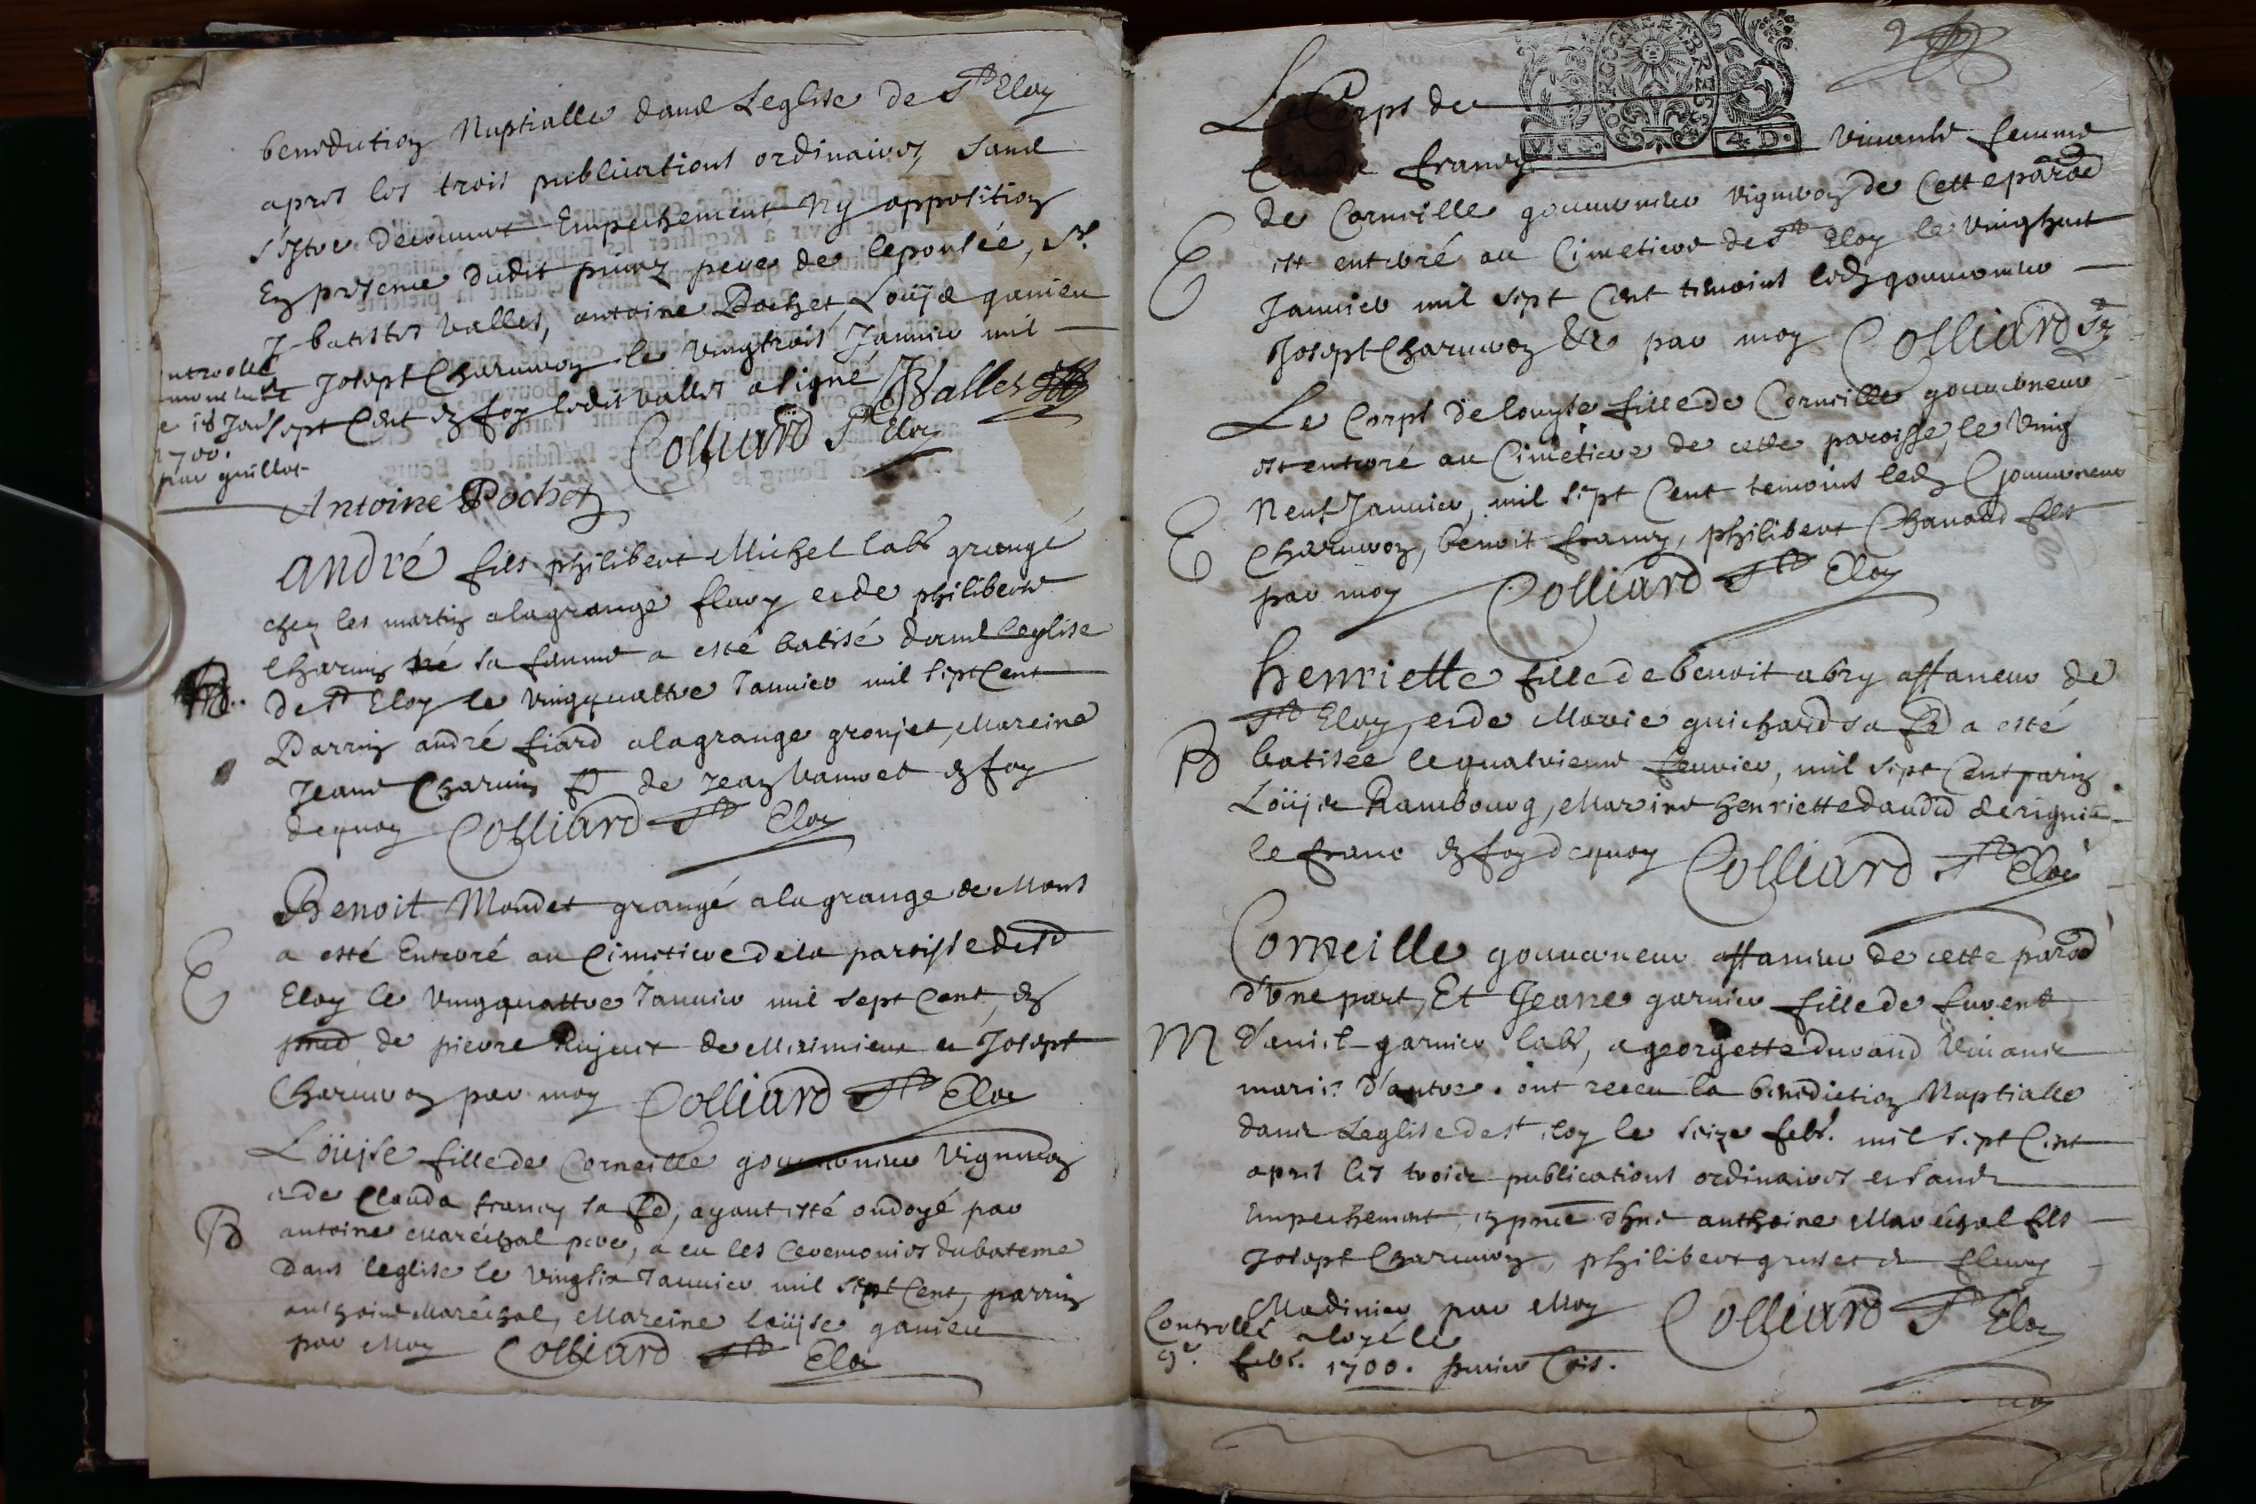 benediction Nuptialle dans Leglise de St Eloy
apres les trois publications ordinaires sans
s'estre decouvert Empechement Ny opposition
En presence dudit pere de lepousée, Sr
J batistes Valles, antoine Pochet, Loüis ganieu
Joseph Charveyron le vingtrois Janvier mil
sept Cent En foy ledit valles a signé JBValles
Colliard St Eloy
Controllé
le 18 Janr
1700.
par guillot
Antoine Pochet
André fils philibert Michel labr grangé
chez les martin a la grange fleury et de philiberte
Charvin sa femme a esté batisé dans leglise
B. de St Eloy le vingquattre Janvier mil sept Cent
Parrin andré fiard a la grange gronjet, Mareine
Jeane Charvin fe de Jean En foy
dequoy Colliard St Eloy
Benoit Moudet grangé a la grange de Mons
a esté Enterré au Cimetiere de la paroisse de St
E Eloy le vingquattre Janvier mil sept Cent, En
pnce de pierre de Meximieux et Joseph
par moy Colliard St Eloy
Loüyse fille de Corneille gouverneur vigneron
et de Clauda francy sa fe, ayant esté ondoyé par
B antoine Maréchal pere, a eu les Ceremonies du bateme
Dans leglise le vingtsix Janvier mil sept Cent, parrin
anthoine Maréchal, Mareine loüyse ganieu
par Moy Colliard St Eloy
2
4. D.
Le Corps de
Claude francy vivante femme
de Corneille gouverneur vigneron de Cette paroe
E est enterré au Cimetiere de St Eloy le vinghuit
Janvier mil sept Cent temoins ledt gouverneur
Joseph &c par moy Colliard St
Le Corps de louyse fille de Corneille gouverneur
est enterré au Cimetiere de cette paroisse, le Ving
Neuf Janvier, mil sept Cent temoins ledt Gouverneur
E benoit francy, philibert Chanard fils
par moy Colliard St Eloy
Henriette fille de benoit abry affaneur de
St Eloy, et de Marie guichard sa fe a esté
B batisée le quatrieme fevrier, mil sept Cent parin
Loüis Rambourg, Marine henriette daudé de rignie
le franc En foy dequoy Colliard St Eloy
Corneille gouverneur affaneur de cette paroe
d'une part, Et Jeane garnier fille de fuvent
M d'aniel garnier labr, a georgette durand vivants
mariez d'autre. ont receu la benediction Nuptialle
dans Leglise de st eloy le seize febr. mil sept Cent
apres les trois publications ordinaires et sans
Empechement, en pnce d'hne anthoine Maréchal fils
Joseph philibert grusset et fleury
Madinier par Moy Colliard St Eloy
Controllé a loyé le
9e. febr. 1700. Cois.